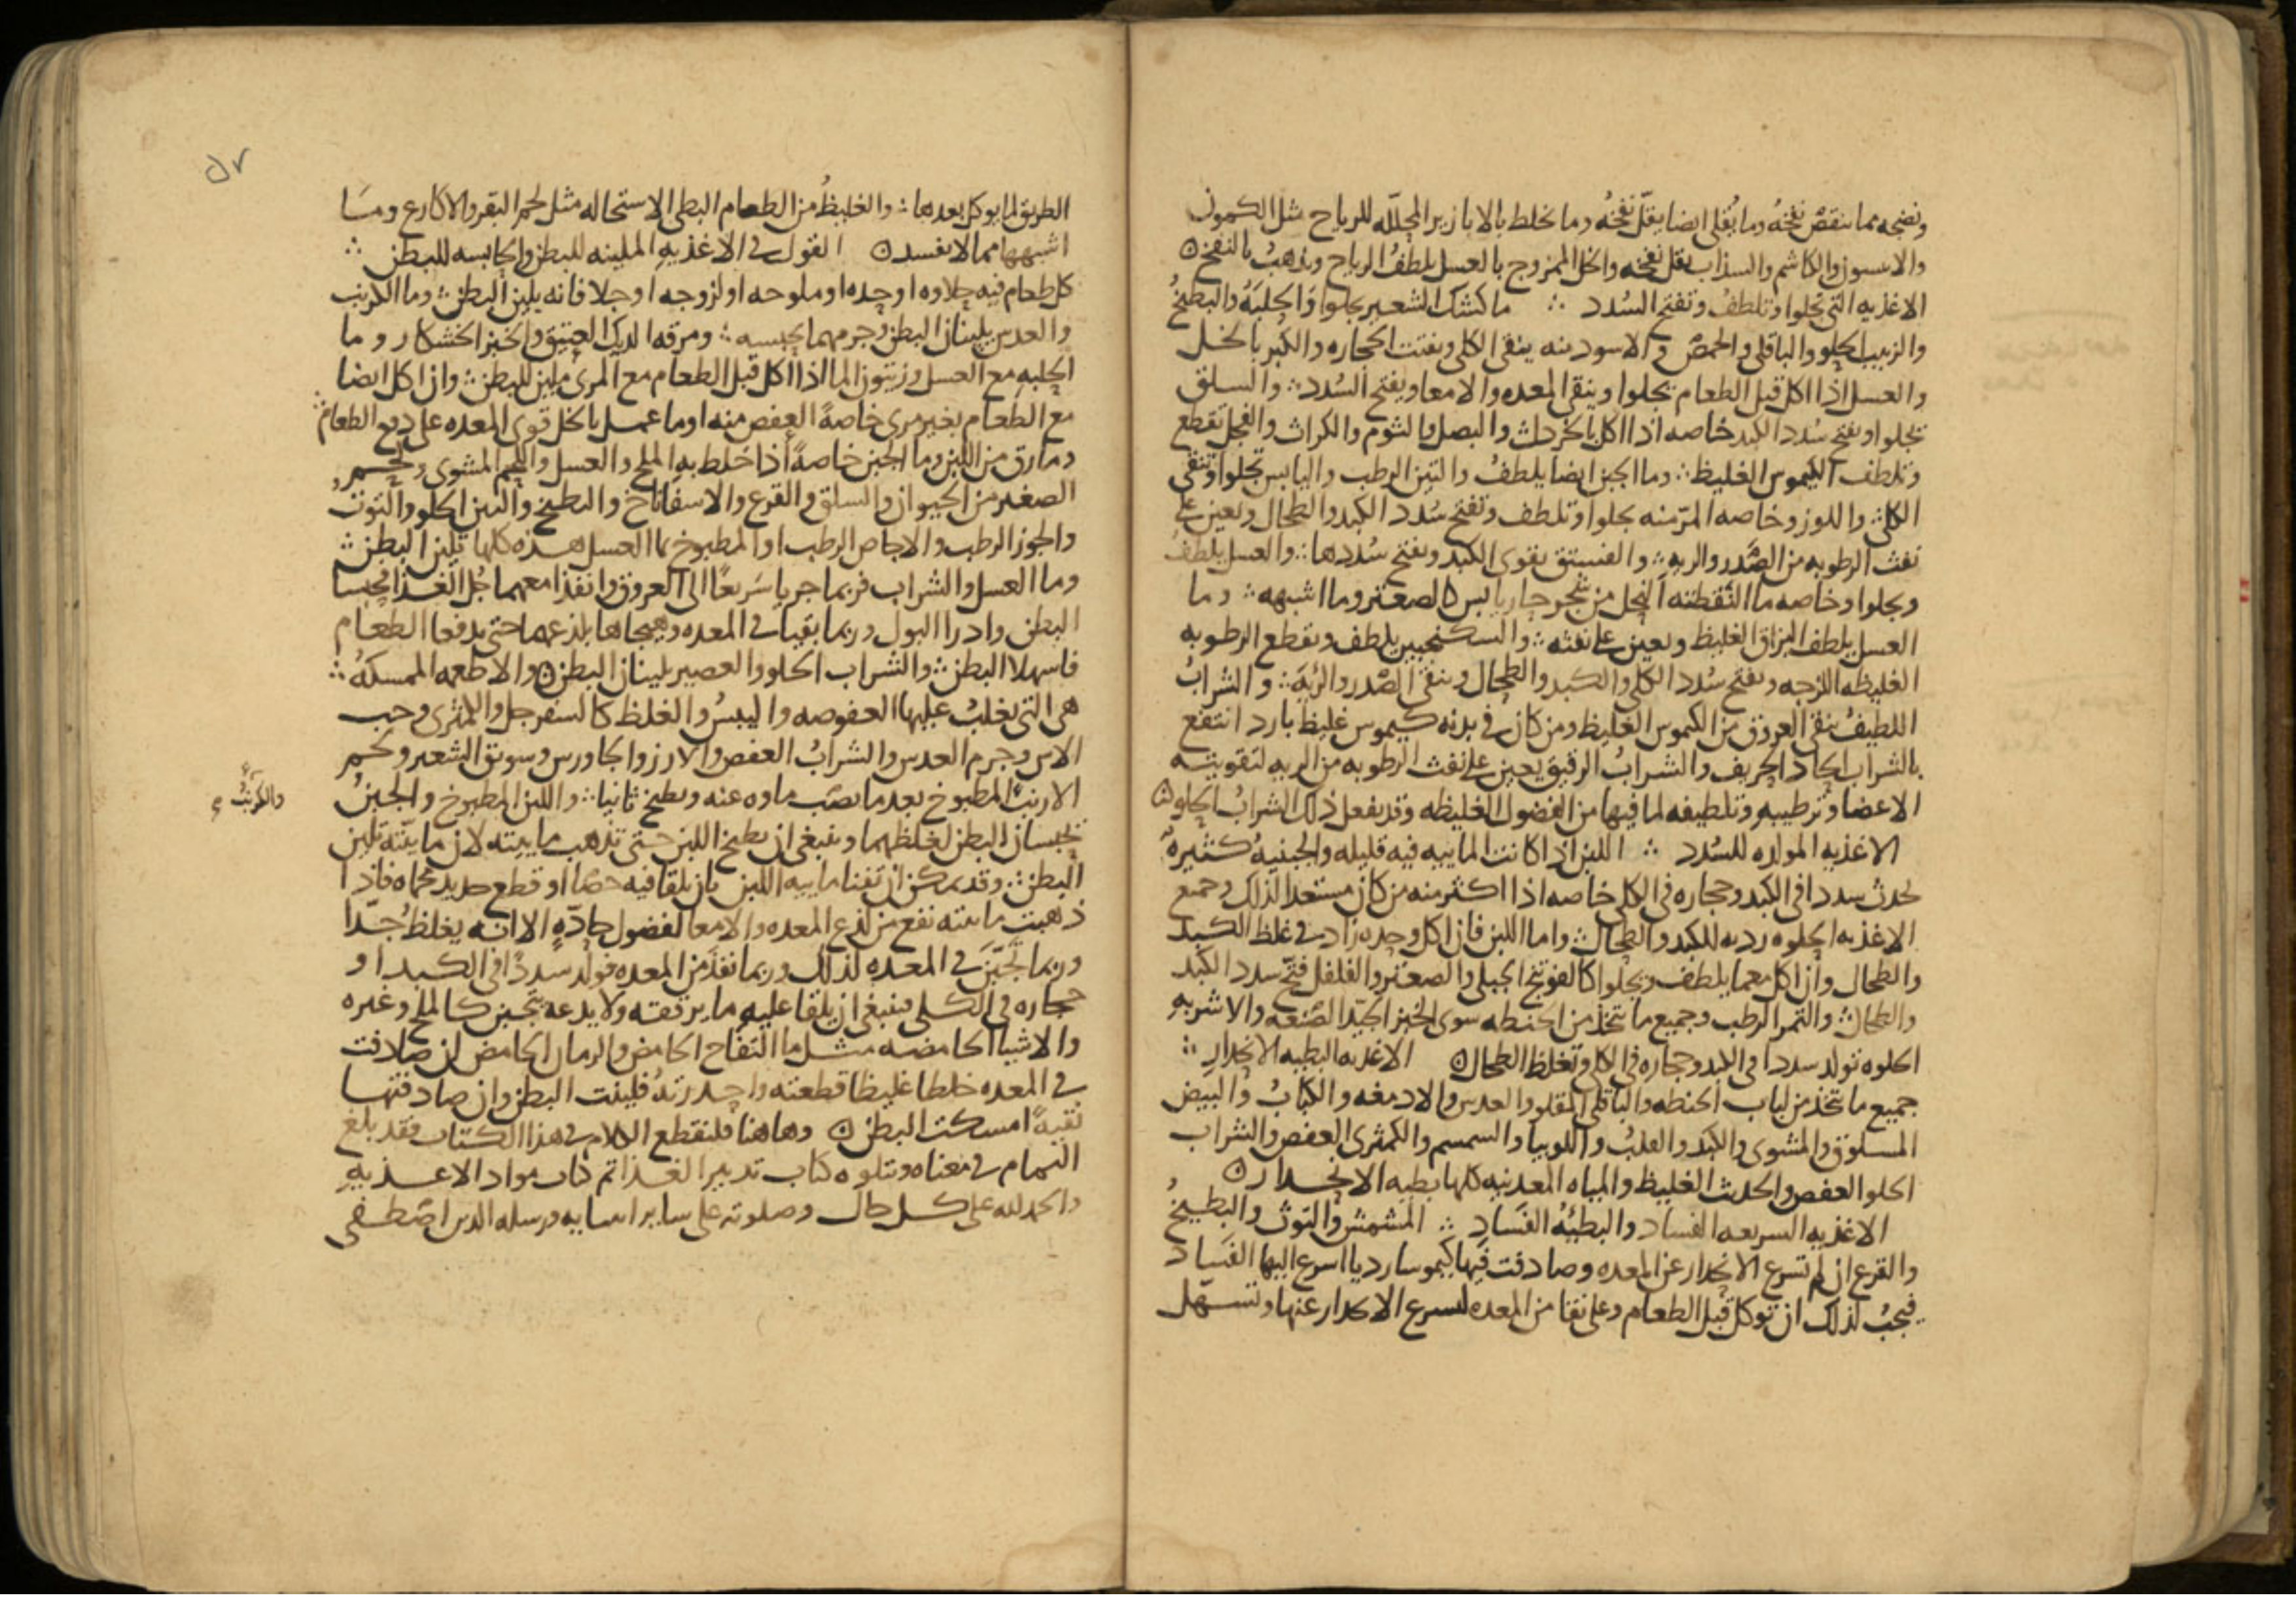 ونضجه مما ينقص نفخه وما يقلى ايضا يقل نفخه وما يخلط بالابازير المحلله للرياح مثل الكمون
والانيسون والكاشم والسذاب يقل نفخه واكل الممزوج بالعسل يلطف الرياح ويذهب بالنفخ
الاغذيه التى تجلوا وتلطف وتفتح السدد ∴ ما كشك الشعير يجلوا والحلبه والبطيخ
والزبيب الحلو والباقلى والحمص والاسود منه ينقى الكلى ويفتت الحجاره والكبر بالخل
والعسل اذا اكل قبل الطعام يجلوا وينقى المعده والامعا ويفتح السدد ∴ والسلق
يجلوا ويفتح سدد الكبد خاصه اذا اكل بالخردل والبصل والثوم والكراث والفجل تقطع
وتلطف الكيموس الغليظ ∴ وما الجبن ايضا يلطف والتين الرطب واليابس تجلوا وتنقى
الكلى ∴ واللوز وخاصه المر منه يجلوا وتلطف وتفتح سدد الكبد والطحال ويعين على
نفث الرطوبه من الصدر والريه ∴ والفستق يقوى الكبد ويفتح سددها ∴ والعسل يلطف
ويجلوا وخاصه ما التقطته النحل من شجر حار يابس كالصعتر وما اشبهه ∴ وما
العسل يلطف البزاق الغليظ ويعين على نفثه ∴ والسكنجبين يلطف ويقطع الرطوبه
الغليظه اللزجه ويفتح سدد الكلى والكبد والطحال وينقى الصدر والريه ∴ والشراب
اللطيف ينقى العروق من الكيموس الغليظ ومن كان فى بدنه كيموس غليظ بارد انتفع
بالشراب الحاد الحريف والشراب الرقيق يعين على نفث الرطوبه من الريه لتقويته
الاعضا وترطيبه وتلطيفه لما فيها من الفضول الغليظه وقد يفعل ذلك الشراب الحلو
الاغذيه المولده للسدد ∴ اللبن اذا كانت المائيه فيه قليله والجبنيه كثيره
يحدث سددا فى الكبد وحجاره فى الكلى خاصه اذا اكثر منه من كان مستعدا لذلك وجميع
الاغذيه الحلوه رديه للكبد والطحال ∴ واما اللبن فان اكل وحده زاد فى غلظ الكبد
والطحال وان اكل معما يلطف ويجلوا كالفوتنج الجبلى والصعتر والفلفل فتح سدد الكبد
والطحال ∴ والتمر الرطب وجميع ما يتخذ من الحنطه سوى الخبز الجيد الصنعه والاشربه
الحلوه تولد سددا فى الكبد وحجاره فى الكلى وتغلظ الطحال الاغذيه البطيه الانحدار ∴
جميع ما يتخذ من لباب الحنطه والباقلى المقلو والعدس والادمغه والكباب والبيض
المسلوق والمشوى والكبد والقلب واللوبيا والسمسم والكمثرى العفص والشراب
الحلو العفص والحدث الغليظ والمياه المعدنيه كلها بطيه الانحدار
الاغذيه السريعه الفساد والبطيئه الفساد ∴ المشمش والتوث والبطيخ
والقرع ان لم تسرع الانحدار عن المعده وصادفت فيها كيموسا رديا اسرع اليها الفساد
فيجب لذلك ان توكل قبل الطعام وعلى نقا من المعده لتسرع الانحدار عنها وتسهل
٥٧
الطريق لما يوكل بعدها ∴ والغليظ من الطعام البطى الاستحاله مثل لحم البقر والاكارع وما
اشبهها مما لا يفسد القول فى الاغذيه الملينه للبطن والحابسه للبطن ∴
كل طعام فيه حلاوه او حده او ملوحه او لزوجه او جلا فانه يلين البطن ∴ وما الكرنب
والعدس يلينان البطن وجرمهما يحبسه ∴ ومرقه الديك العتيق والخبز الخشكار وما
الحلبه مع العسل وزيتون الما اذا اكل قبل الطعام مع المرى ملين للبطن ∴ وان اكل ايضا
مع الطعام بغير مرى خاصة العفص منه او ما عمل بالخل قوى المعده على دفع الطعام ∴
وما رق من اللبن وما الجبن خاصة اذا خلط به الملح والعسل واللحم المشوى ولحم
الصغير من الحيوان والسلق والقرع والاسفاناخ والبطيخ والتين الحلو والتوث
والجوز الرطب والاجاص الرطب او المطبوخ بما العسل هذه كلها تلين البطن ∴
وما العسل والشراب فربما جريا سريعا الى العروق وانفذا معهما جل الغذا فحبسا
البطن وادرا البول وربما بقيا فى المعده وهيجاها بلذعهما حتى يدفعا الطعام
فاسهلا البطن ∴ والشراب الحلو والعصير يلينان البطن والاطعمه الممسكه ∴
هى التى يغلب عليها العفوصه واليبس والغلظ كالسفرجل والكمثرى وحب
الاس وجرم العدس والشراب العفص والارز والجاورس وسويق الشعير ولحم
الارنب المطبوخ بعد ما يصب ماوه عنه ويطبخ ثانيا ∴ واللبن المطبوخ والجبن
والكرنب
يحبسان البطن لغلظهما وينبغى ان يطبخ اللبن حتى تذهب مايته لان مايته تلين
البطن ∴ وقد يمكن ان تفنا ماييه اللبن بان يلقا فيه حصا او قطع حديد محماه فاذا
ذهبت مايته نفع من لذع المعده والامعا لفضول حاده الا انه يغلظ جدا
وربما تجبن فى المعده لذلك وربما نفذ من المعده فولد سددا فى الكبد او
حجاره فى الكلى فينبغى ان يلقا عليه ما يرققه ولا يدعه يتجبن كالملح وغيره
والاشيا الحامضه مثل ما التفاح الحامض والرمان الحامض ان صادفت
فى المعده خلطا غليظا قطعته واحدرته فلينت البطن وان صادفتها
نقية امسكت البطن وهاهنا فلنقطع الكلام فى هذا الكتاب فقد بلغ
التمام فى معناه ونتلوه كتاب تدبير الغذا تم كتاب مواد الاغذيه
والحمد لله على كل حال وصلوته على ساير انبيايه ورسله الذين اصطفى